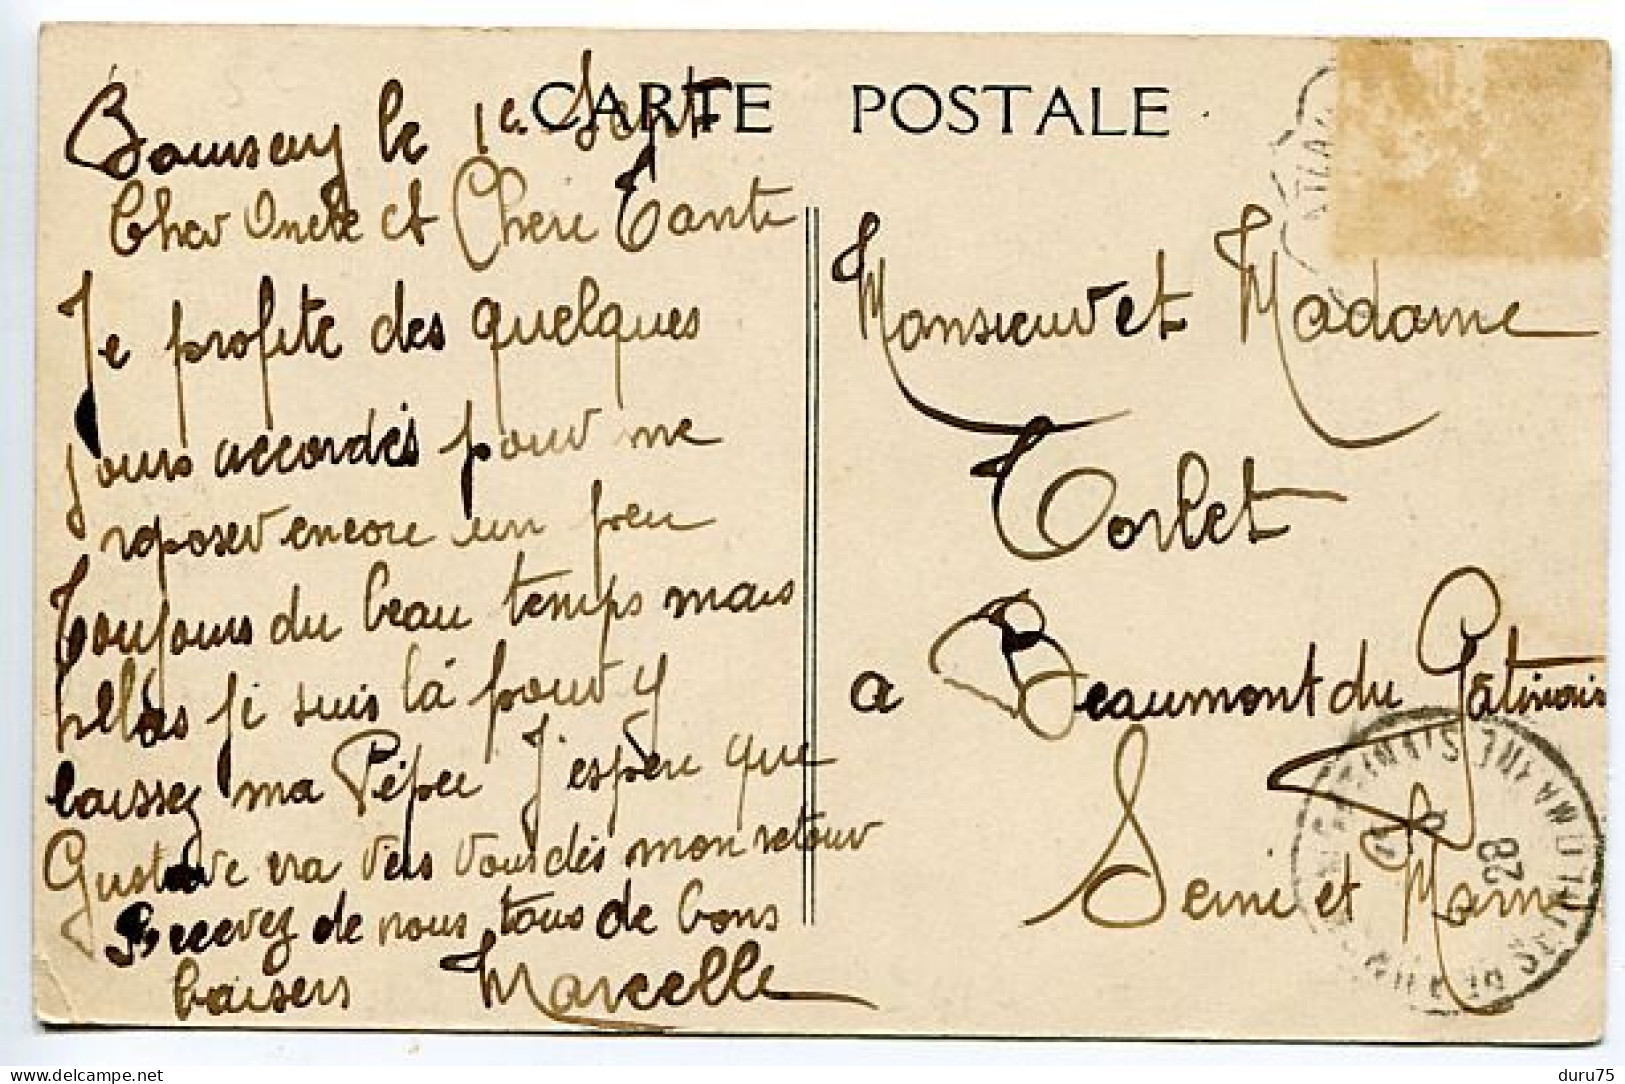 CARTE POSTALE
le 1e Sept
Cher Oncle et Chere Tante
Je profite des quelques
jours accordés pour me
reposer encore un peu
Toujours du beau temps mais
hélas je suis là pour y
laissez ma Pépée J'espere que
Gustave ira vers vous dès mon retour
Recevez de nous tous de bons
baisers Marcelle
Monsieur et Madame
Torlet
a Beaumont du Gâtinais
Seine et Marne
28
delcampe.net
duru75